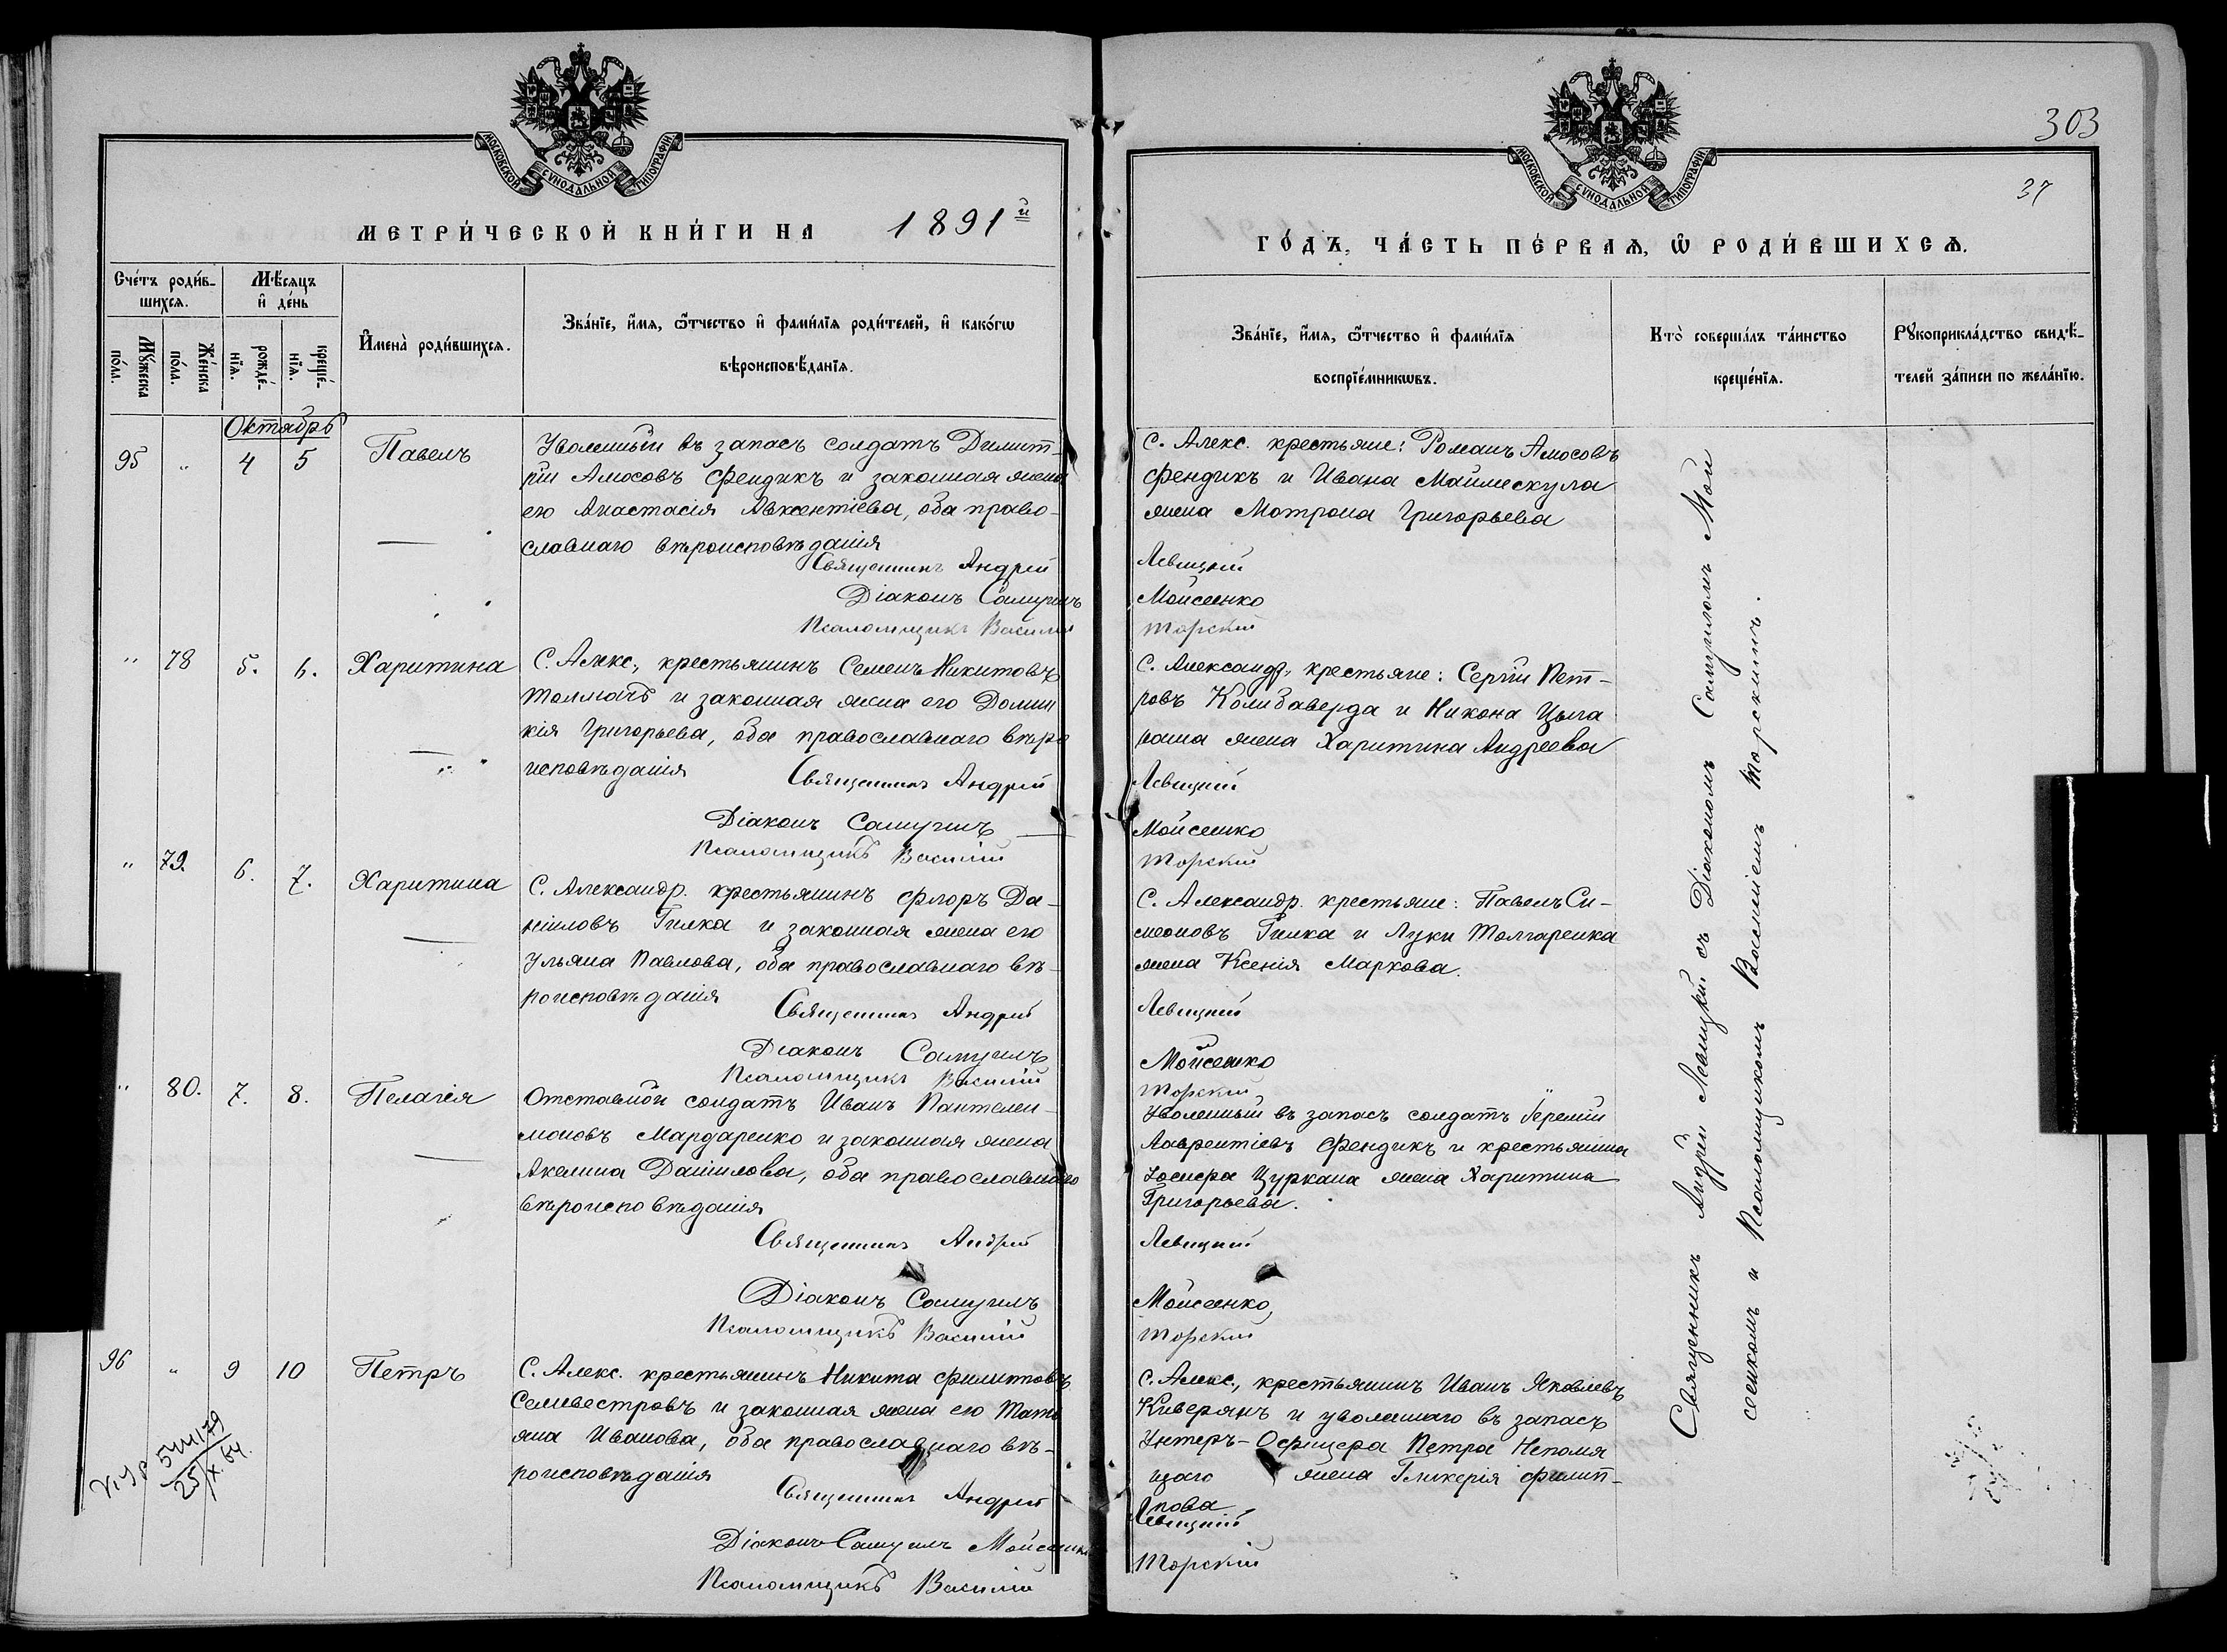 МОСКОВСКОЙ СѴНОДАЛЬНОЙ ТИПОГРАФІИ
МЕТРИ́ЧЕСКОЙ КНИ́ГИ НА 1891й
Сче́тъ роди́в-
шихся.
Мѣ́сяцъ
и҆ де́нь
Мꙋ́жеска
по́ла.
Же́нска
по́ла.
рожде́-
нїѧ.
креще́-
нїѧ.
И҆мена̀ роди́вшихсѧ.
Зва́нїе, и҆́мѧ, ѻ҆́тчество и҆ фами́лїѧ роди́телей, и҆ како́гѡ
вѣроисповѣ́данїѧ.
Октябрь
95 " 4 5 Павелъ
Уволенный въ запасъ солдатъ Димит-
рій Амосовъ Фендикъ и законная жена
его Анастасія Авксентіева, оба право-
славнаго вѣроисповѣданія
Священникъ Андрей
Діаконъ Самуилъ
Псаломщикъ Василій
" 78 5. 6. Харитина
С. Алекс., крестьянинъ Семенъ Никитовъ
Толмачъ и законная жена его Домни
кія Григорьева, оба православнаго вѣро
исповѣданія
Священникъ Андрей
Діаконъ Самуилъ
Псаломщикъ Василій
" 79. 6. 7. Харитина
С. Александр. крестьянинъ Флоръ Да-
ніиловъ Гилка и законная жена его
Ульяна Павлова, оба православнаго вѣ-
роисповѣданія
Священникъ Андрей
Діаконъ Самуилъ
Псаломщикъ Василій
" 80. 7. 8. Пелагія
Отставной солдатъ Иванъ Пантелеи-
моновъ Мардаренко и законная жена
Акелина Даніилова, оба православнаго
вѣроисповѣданія
Священникъ Андрей
Діаконъ Самуилъ
Псаломщикъ Василій
96 " 9 10 Петръ
С. Алекс. крестьянинъ Никита Филиповъ
Селивестровъ и законная жена его Тать
яна Иванова, оба православнаго вѣ-
роисповѣданія
Священникъ Андрей
Діаконъ Самуилъ Мойсеенко
Псаломщикъ Василій
25/X.64.
303
37
МОСКОВСКОЙ СѴНОДАЛЬНОЙ ТИПОГРАФІИ
ГО́ДЪ, ЧА́СТЬ ПЕ́РВАѦ, Ѡ҆ РОДИ́ВШИХСѦ.
Зва́нїе, и҆́мѧ, ѻ҆́тчество и҆ фами́лїѧ
воспрїе́мникѡвъ.
Кто̀ соверша́лъ та́инство
креще́нїѧ.
Рꙋкоприкла́дство свидѣ́-
телей за́писи по жела́нїю.
С. Алекс. крестьяне: Романъ Амосовъ
Фендикъ и Ивана Маймескула
жена Матрона Григорьева
Левицкій
Мойсеенко
Торскій
С. Александр., крестьяне: Сергій Пет-
ровъ Колибаверда и Никона Цыга
жена Харитина Андреева
Левицкій
Мойсеенко
Торскій
С. Александр. крестьяне: Павелъ Си-
меоновъ Гилка и Луки Толгаренка
жена Ксенія Маркова.
Левицкій
Мойсеенко
Торскій
Уволенный въ запасъ солдатъ Іеремій
Лаврентіевъ Фендикъ и крестьянина
Іосифа Цуркана жена Харитина
Григорьева.
Левицкій
Мойсеенко,
Торскій
С. Алекс., крестьянинъ Иванъ Яковлевъ
Киверянъ и уволеннаго въ запасъ
Унтеръ-Офицера Петра Непомя
щаго жена Гликерія Филип-
пова
Левицкій
Торскій
Священникъ Андрей Левицкій съ Діакономъ Самуиломъ Мой
сеенкомъ и Псаломщикомъ Василіемъ Торскимъ.